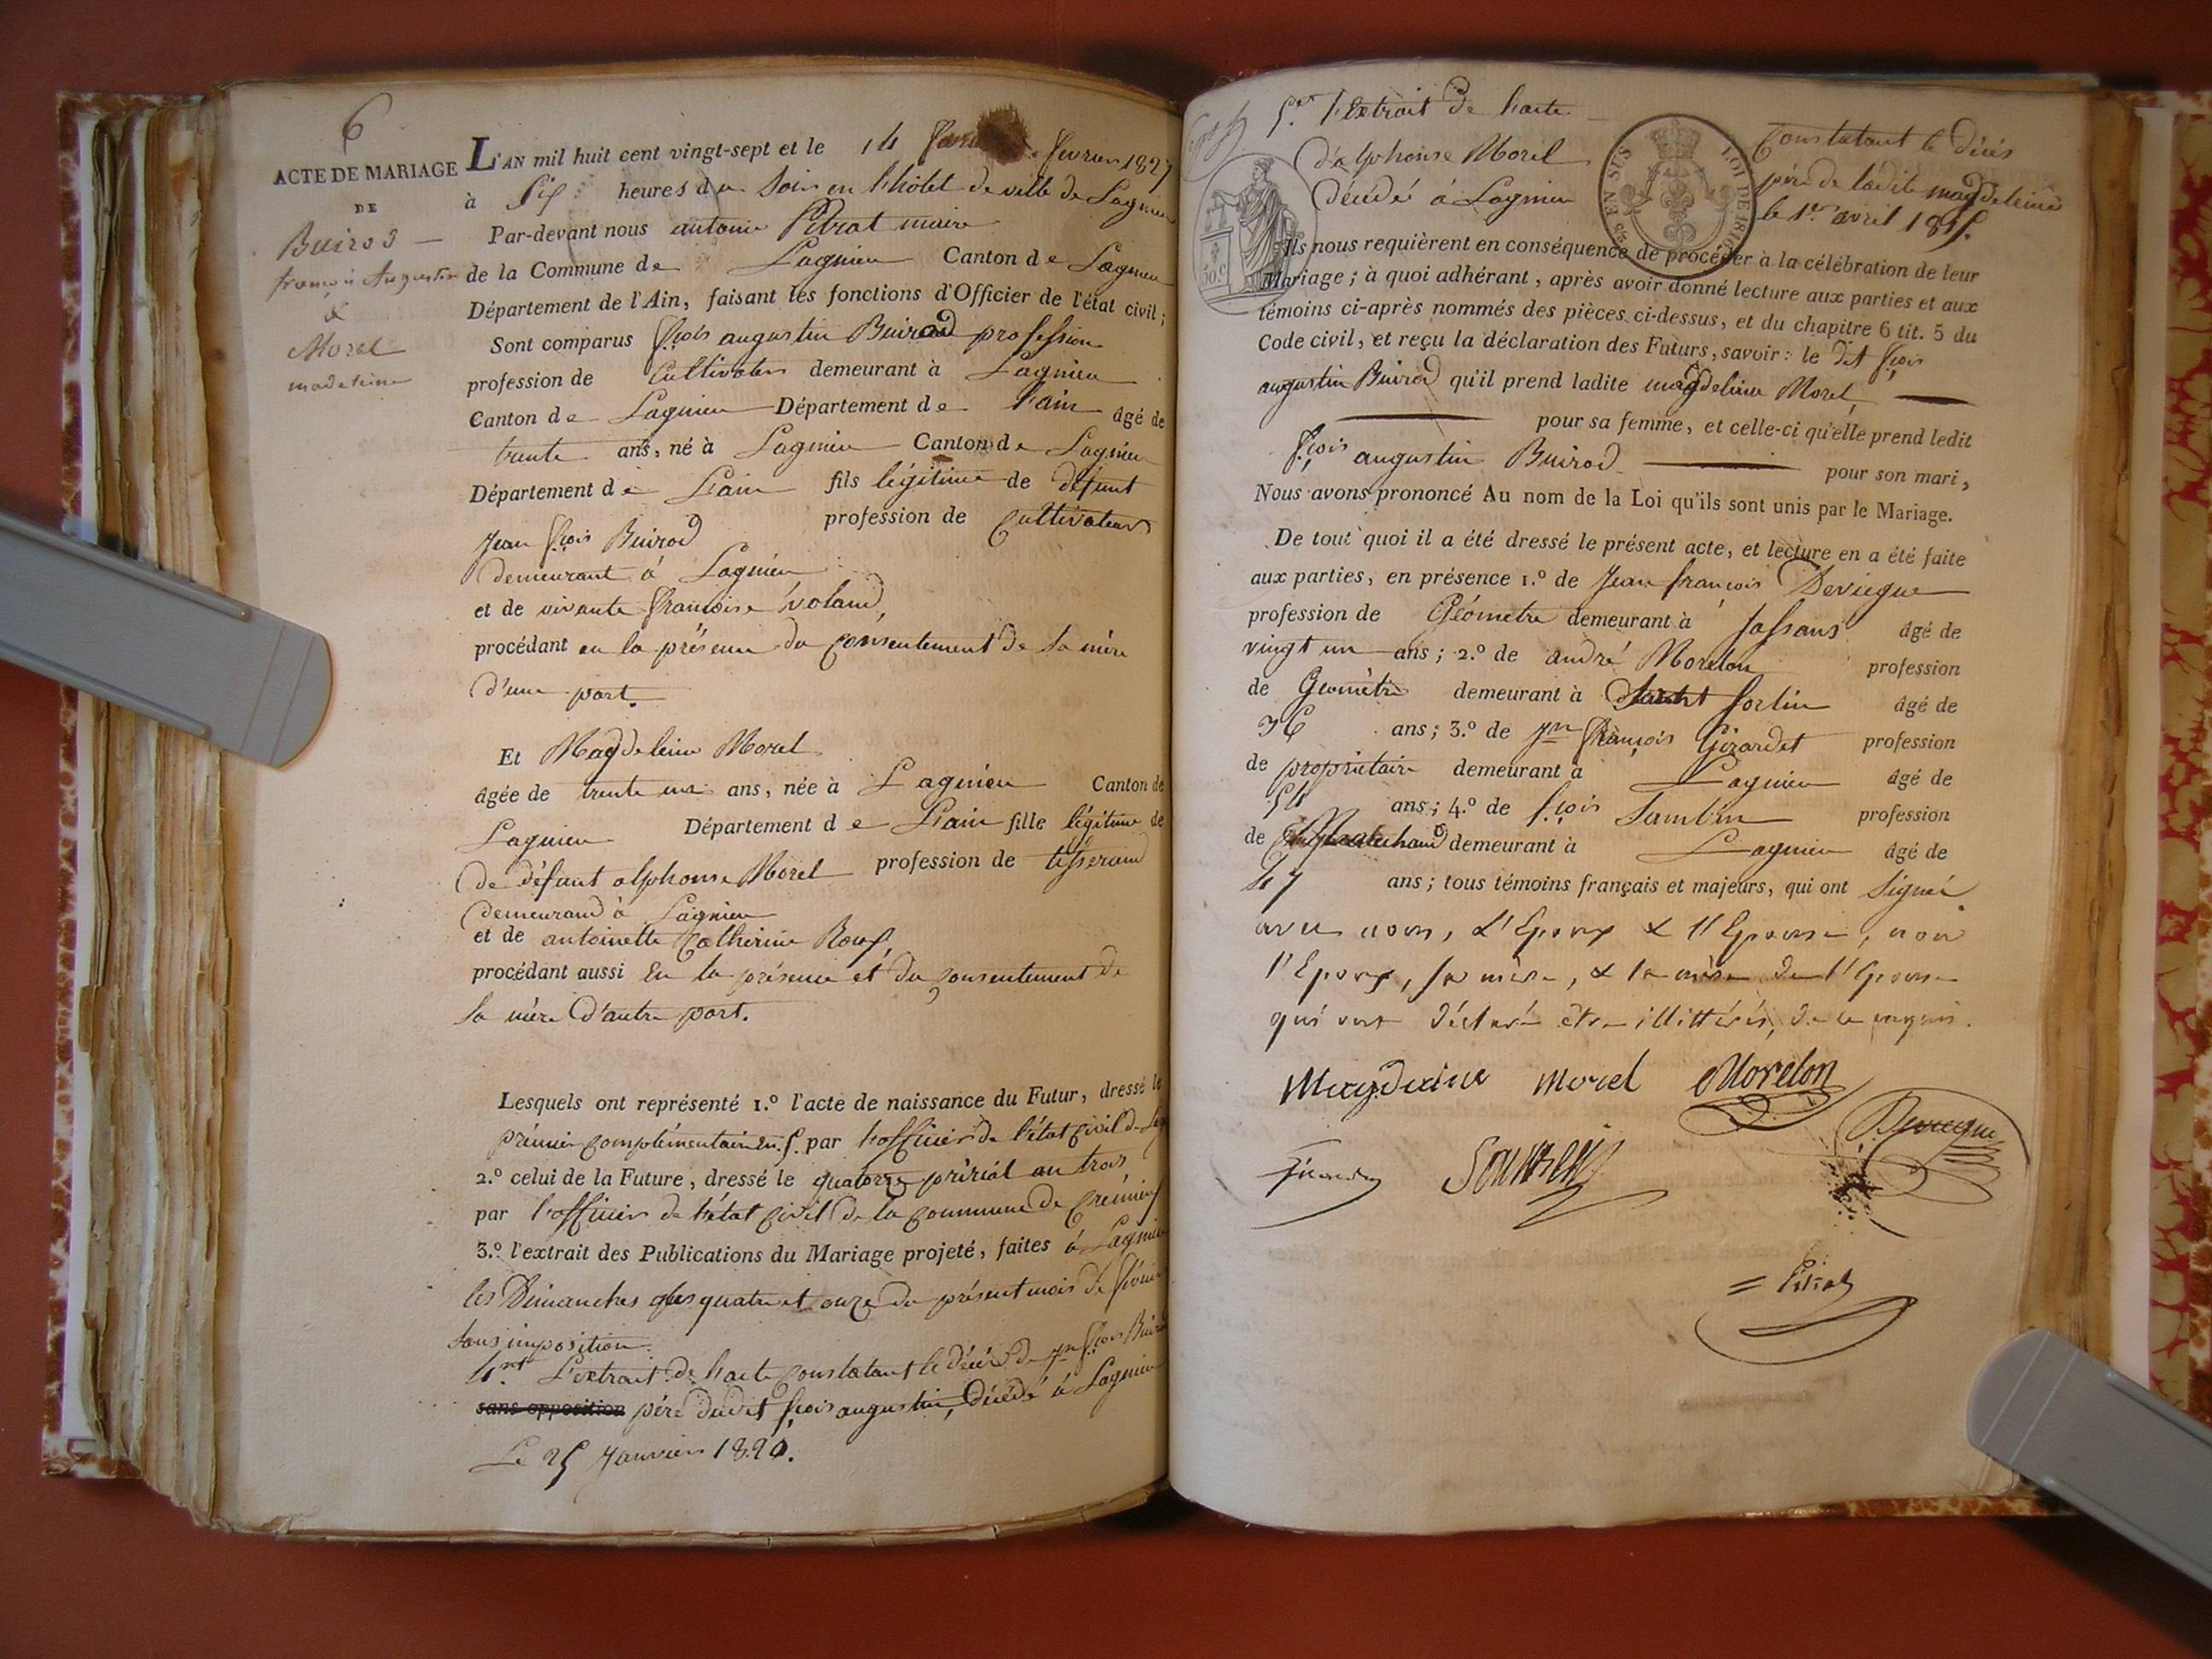 6
ACTE DE MARIAGE
DE
Buirod
françois Augustin
&
Morel
madeleine
L'AN mil huit cent vingt-sept et le 14 fevrier 1827
à six heures du soir en l'hôtel de ville de Lagnieu
Par-devant nous antoine Pitrat maire
de la Commune de Lagnieu Canton de Lagnieu
Département de l'Ain, faisant les fonctions d'Officier de l'état civil;
Sont comparus fçois augustin Buirod profession
profession de Cultivateur demeurant à Lagnieu
Canton de Lagnieu Département de l'ain âgé de
trente ans, né à Lagnieu Canton de Lagnieu
Département de L'ain fils légitime de défunt
Jean fçois Buirod profession de Cultivateur
demeurant à Lagnieu
et de vivante françoise Voland,
procédant en la présence du consentement de sa mère
d'une part.
Et Magdeleine Morel
âgée de trente un ans, née à Lagnieu Canton de
Lagnieu Département de L'ain fille légitime de
de défunt alphonse Morel profession de tisserand
demeurand à Lagnieu
et de antoinette Catherine Roux,
procédant aussi en la présence et du consentement de
sa mère d'autre part.
Lesquels ont représenté 1.º l'acte de naissance du Futur, dressé le
prémier complémentaire an 5. par l'officier de l'état civil de Lag
2.º celui de la Future, dressé le quatorze prérial an trois
par l'officier de l'état civil de la commune de
3.º l'extrait des Publications du Mariage projeté, faites à Lagnieu
les Dimanches quatre et onze du présent mois de février
sans imposition.
4.nt L'extrait de l'acte constatant le décès de Jn fçois Buirod
sans opposition père dudit fçois augustin, décédé à Lagnieu
Le 25 Janvier 1820.
5.nt l'Extrait de l'acte Constatant le décès
d'alphonse Morel père de ladite magdeleine
décédé à Lagnieu le 1er avril 1815.
50.c
EN SUS
LOI DE 1816
Ils nous requièrent en conséquence de procéder à la célébration de leur
Mariage; à quoi adhérant, après avoir donné lecture aux parties et aux
témoins ci-après nommés des pièces ci-dessus, et du chapitre 6 tit. 5 du
Code civil, et reçu la déclaration des Futurs, savoir: le dit fçois
augustin Buirod qu'il prend ladite magdeleine Morel
pour sa femme, et celle-ci qu'elle prend ledit
fçois augustin Buirod pour son mari,
Nous avons prononcé Au nom de la Loi qu'ils sont unis par le Mariage.
De tout quoi il a été dressé le présent acte, et lecture en a été faite
aux parties, en présence 1.º de Jean françois Devieque
profession de Géometre demeurant à Sassans âgé de
vingt un ans; 2.º de andré Morelon profession
de Geomètre demeurant à Saint Sorlin âgé de
36 ans; 3.º de Jn françois Girardet profession
de propriétaire demeurant à Lagnieu âgé de
54 ans; 4.º de fçois profession
de Marchand demeurant à Lagnieu âgé de
47 ans; tous témoins français et majeurs, qui ont signé
avec nous, & l'Epoux & l'Epouse, non
l'Epoux, sa mère, & la mère de l'Epouse
qui ont déclaré être illittérés, de ce requis.
Magdeleine morel Morelon
Devieque
Pitrat